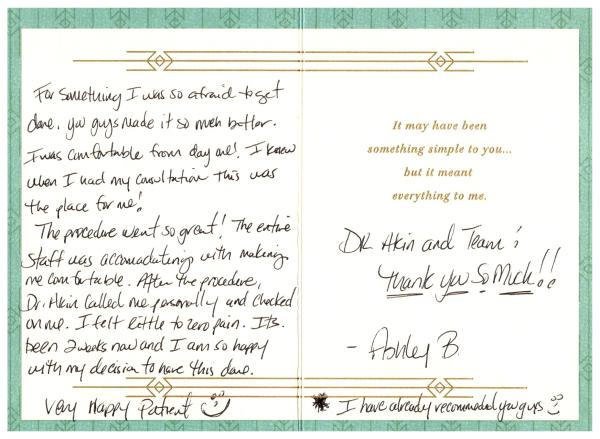 For something I was so afraid to get
done, you guys made it so much better.
I was comfortable from day one! I knew
when I had my consultation this was
the place for me!
The procedure went so great! The entire
staff was accomadating with making
me comfortable. After the procedure,
Dr. Akin called me personally and checked
on me. I felt little to zero pain. Its
been 2 weeks now and I am so happy
with my decision to have this done.
Very Happy Patient
It may have been
something simple to you...
but it meant
everything to me.
DR. Akin and Team;
Thank you So Much!!
- Ashley B.
* I have already recommended you guys